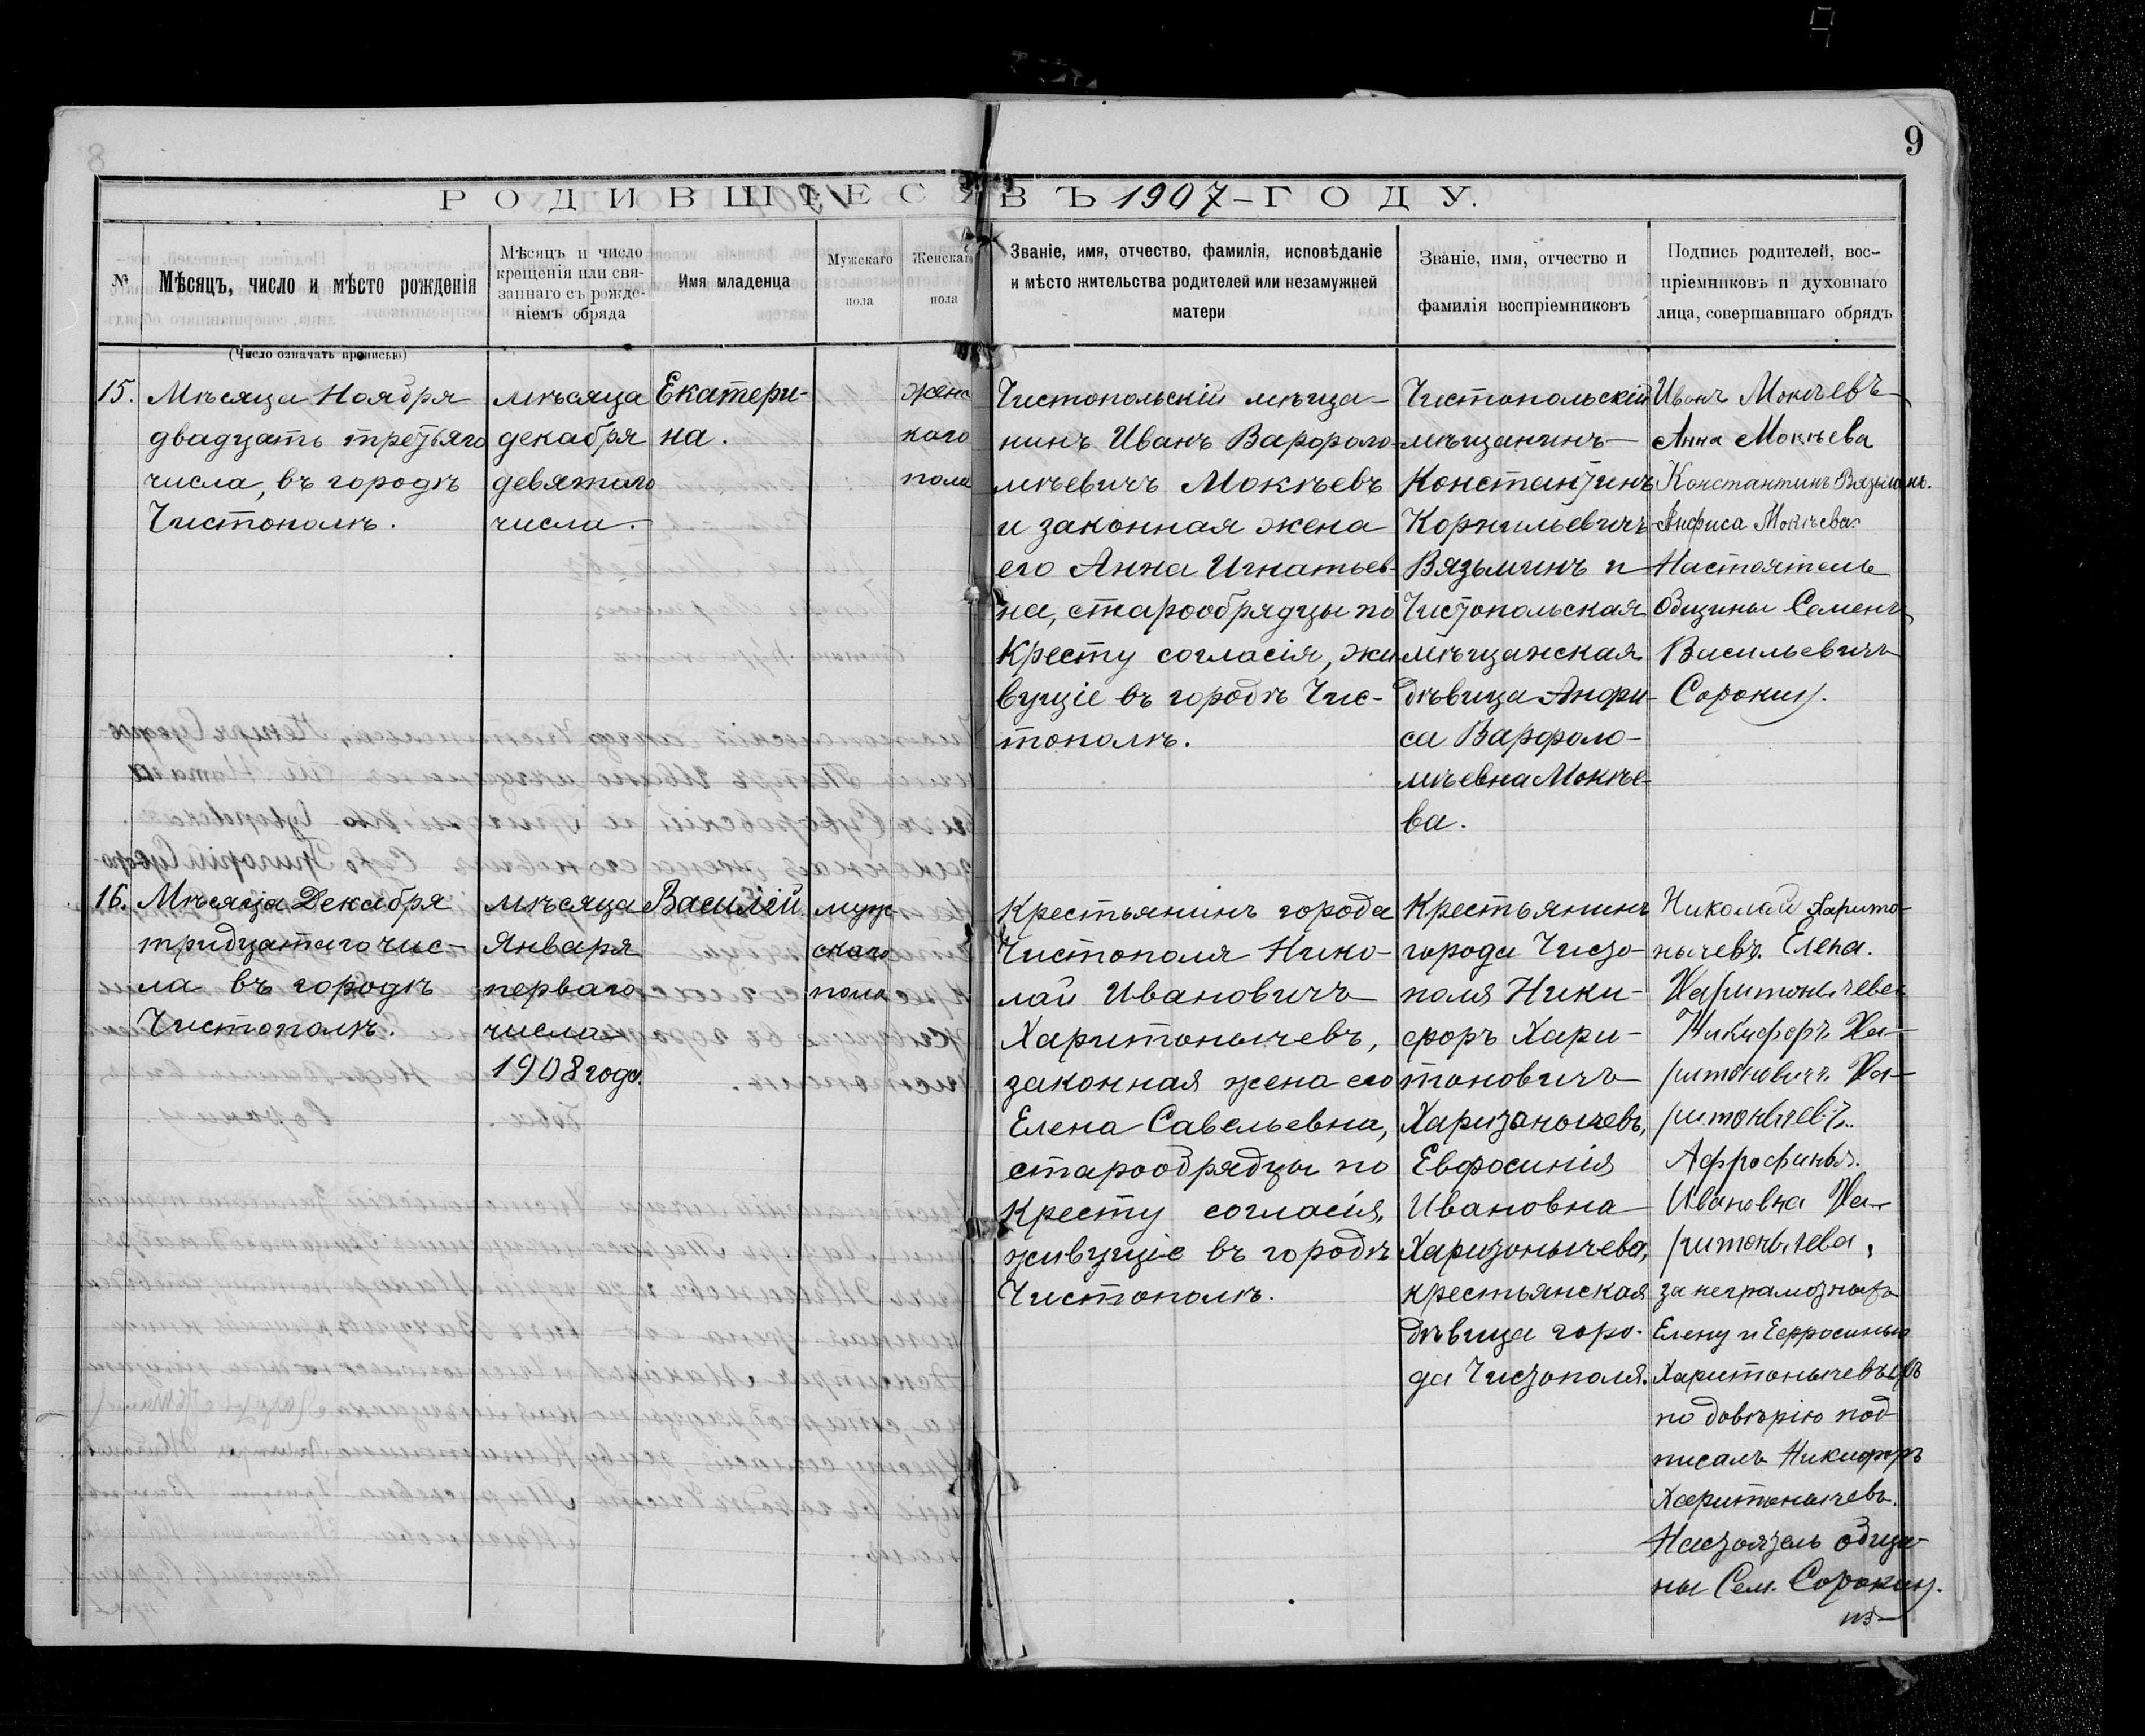 9
РОДИВШІЕСЯ ВЪ 1907-ГОДУ.
№
Мѣсяцъ, число и мѣсто рожденія
(Число означать прописью)
Мѣсяцъ и число
крещенія или свя-
заннаго съ рожде-
ніемъ обряда
Имя младенца
Мужскаго
пола
Женскаго
пола
Званіе, имя, отчество, фамилія, исповѣданіе
и мѣсто жительства родителей или незамужней
матери
Званіе, имя, отчество и
фамилія воспріемниковъ
Подпись родителей, вос-
пріемниковъ и духовнаго
лица, совершавшаго обрядъ
15.
Мѣсяца Ноября
двадцать третьяго
числа, въ городѣ
Чистополѣ.
мѣсяца
декабря
девятаго
числа.
Екатери-
на.
женс
каго
пола
Чистопольскій мѣща-
нинъ Иванъ Варфоло-
мѣевичъ Мокѣевъ
и законная жена
его Анна Игнатьев-
на, старообрядцы по
Кресту согласія, жи
вущіе въ городѣ Чис-
тополѣ.
Чистопольскій
мѣщанинъ
Константинъ
Корнильевичъ
Вязьминъ и
Чистопольская
мѣщанская
дѣвица Анфи-
са Варфоло-
мѣевна Мокѣе-
ва.
Иванъ Мокѣевъ
Анна Мокѣева
Константинъ Вязьминъ.
Анфиса Мокѣева.
Настоятель
Общины Семенъ
Васильевичъ
Сорокинъ.
16.
Мѣсяца Декабря
тридцатаго чис-
ла въ городѣ
Чистополѣ.
мѣсяца
Января
перваго
числа
1908 года.
Василій.
муж-
ского
пола
Крестьянинъ города
Чистополя Нико-
лай Ивановичъ
Харитонычевъ,
законная жена его
Елена Савельевна,
старообрядцы по
Кресту согласія,
живущіе въ городѣ
Чистополѣ.
Крестьянинъ
города Чисто-
поля Ники-
форъ Хари-
тоновичъ
Харитонычевъ,
Евфосинія
Ивановна
Харитонычева,
крестьянская
дѣвица горо-
да Чистополя.
Николай Харито-
нычевъ. Елена.
Харитонычева
Никифоръ Ха-
ритоновичъ Ха-
ритонычевъ.
Афросинья.
Ивановна Ха-
ритонычева,
за неграмотныхъ
Елену и Ефросинью
Харитонычевыхъ
по довѣрію под-
писалъ Никифоръ
Харитонычевъ.
Настоятель общи-
ны Сем. Сорокинъ.